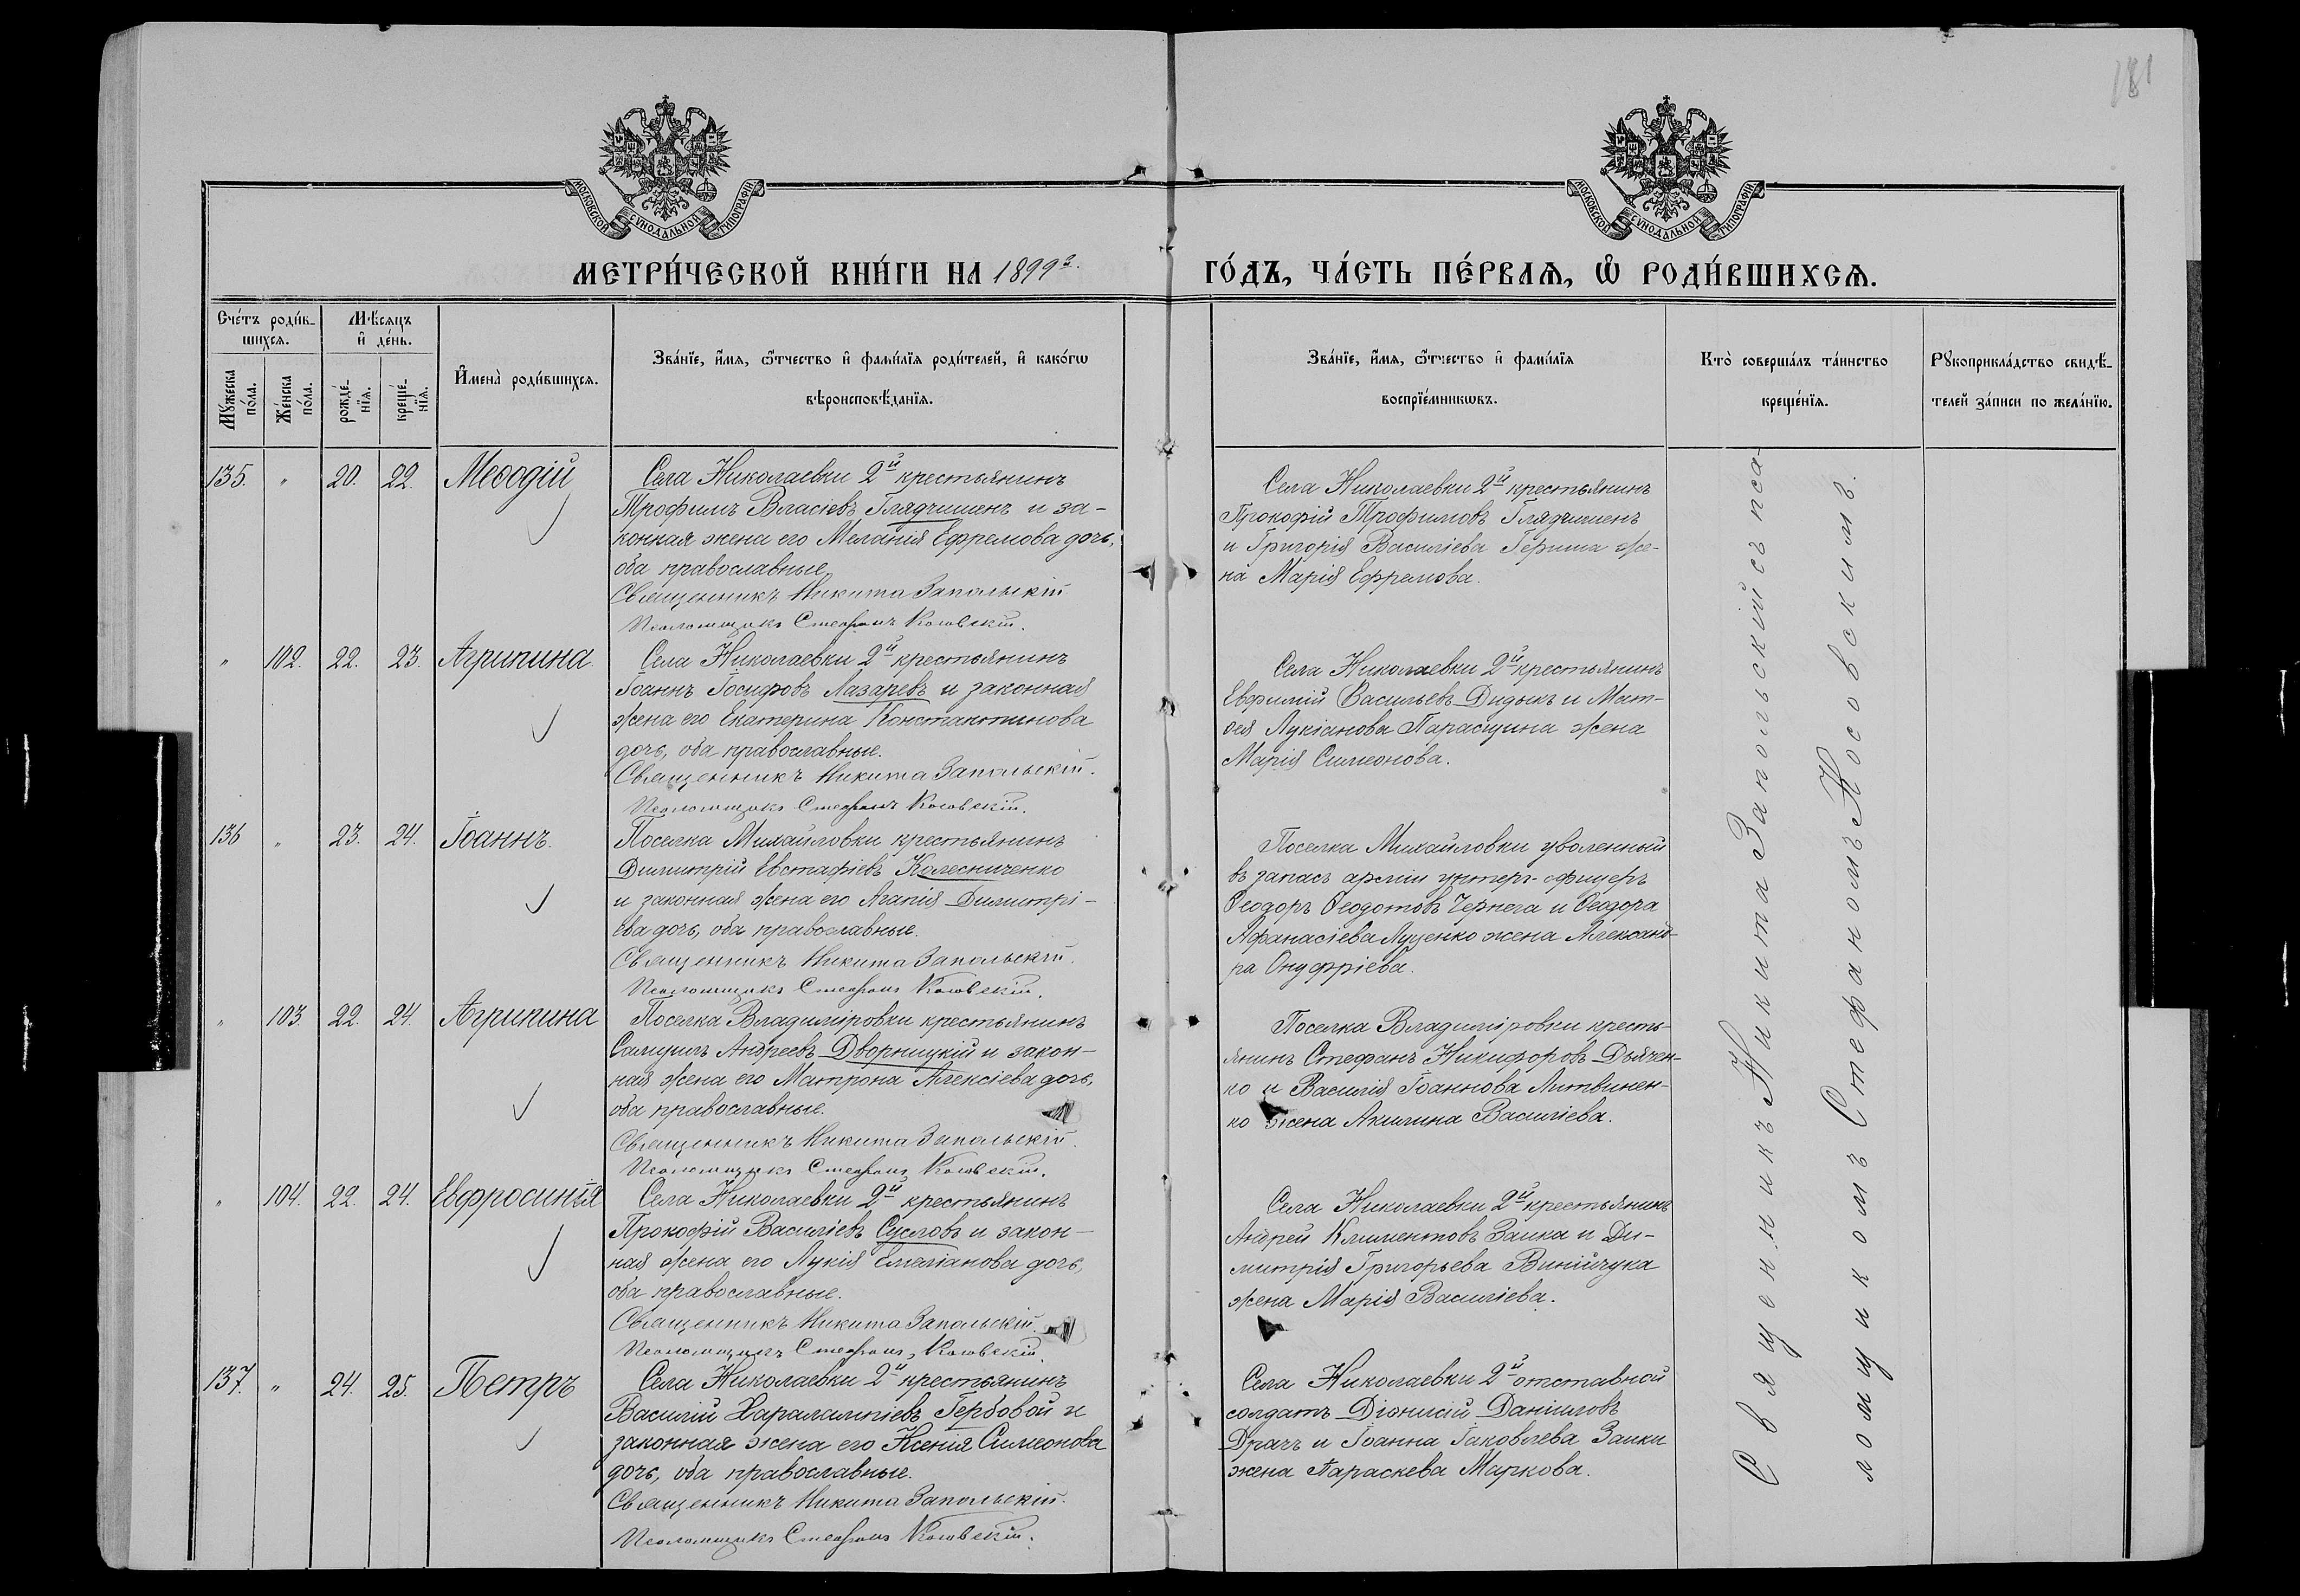 181
МОСКОВСКОЙ СУНОДАЛЬНОЙ ТИПОГРАФІИ
МОСКОВСКОЙ СУНОДАЛЬНОЙ ТИПОГРАФІИ
МЕТРИ́ЧЕСКОЙ КНИ́ГИ НА 1899 г.
ГО́ДЪ, ЧА́СТЬ ПЕ́РВАѦ, Ѡ҆ РОДИ́ВШИХСѦ.
Сче́тъ роди́в-
шихсѧ.
Мꙋ́жеска по́ла.
Же́нска по́ла.
Мѣ́сѧцъ
и҆ де́нь.
рожде́-
нїѧ.
креще́-
нїѧ.
И҆мена̀ роди́вшихсѧ.
Зва́нїе, и҆́мѧ, ѻ҆́тчество и҆ фамі́лїѧ роди́телей, и҆ како́гѡ
вѣроисповѣ́данїѧ.
Зва́нїе, и҆́мѧ, ѻ҆́тчество и҆ фамі́лїѧ
воспрїе́мникѡвъ.
Кто̀ соверша́лъ та́инство
креще́нїѧ.
Рꙋкоприкла́дство свидѣ́-
телей за́писи по жела́нїю.
135. " 20. 22. Меѳодій
Села Николаевки 2й крестьянинъ
Трофимъ Власіевъ Глядчишенъ и за-
конная жена его Меланія Ефремова дочь,
оба православные.
Священникъ Никита Запольскій
Псаломщикъ Стефанъ Косовскій.
Села Николаевки 2й крестьянинъ
Прокофій Трофимовъ Глядчишенъ
и Григорія Василіева Гериша же-
на Марія Ефремова.
" 102. 22. 23. Агрипина.
Села Николаевки 2й крестьянинъ
Іоаннъ Іосифовъ Лазаревъ и законная
жена его Екатерина Константинова
дочь, оба православные.
Священникъ Никита Запольскій.
Псаломщикъ Стефанъ Косовскій.
Села Николаевки 2й крестьянинъ
Евфимій Васильевъ Дидыкъ и Мат-
ѳея Лукіанова Паращина жена
Марія Симеонова.
136 " 23. 24. Іоаннъ.
Поселка Михайловки крестьянинъ
Димитрій Евстафіевъ Колесниченко
и законная жена его Агапія Димитрі-
ева дочь, оба православные.
Священникъ Никита Запольскій.
Псаломщикъ Стефанъ Косовскій.
Поселка Михайловки уволенный
въ запасъ арміи унтеръ-офицеръ
Ѳеодоръ Ѳеодотовъ Чернега и Ѳеодора
Афанасіева Луценко жена Александ-
ра Онуфріева.
" 103. 22. 24. Агрипина
Поселка Владиміровки крестьянинъ
Самуилъ Андреевъ Дворницкій и закон-
ная жена его Матрона Алексіева дочь,
оба православные.
Священникъ Никита Запольскій.
Псаломщикъ Стефанъ Косовскій.
Поселка Владиміровки кресть-
янинъ Стефанъ Никифоровъ Дьячен-
ко и Василія Іоаннова Литвинен-
ко жена Акилина Василіева.
" 104. 22. 24. Евфросинія
Села Николаевки 2й крестьянинъ
Прокофій Василіевъ Сусловъ и закон-
ная жена его Лукія Емеліанова дочь,
оба православные.
Священникъ Никита Запольскій.
Псаломщикъ Стефанъ Косовскій.
Села Николаевки 2й крестьянинъ
Андрей Климентовъ Заика и Ди-
митрія Григорьева Винійчука
жена Марія Василіева.
137. " 24. 25. Петръ
Села Николаевки 2й крестьянинъ
Василій Харалампіевъ Гербовой и
законная жена его Ксенія Симеонова
дочь, оба православные.
Священникъ Никита Запольскій.
Псаломщикъ Стефанъ Косовскій.
Села Николаевки 2й отставной
солдатъ Діонисій Даніиловъ
Драчъ и Іоанна Іаковлева Заики
жена Параскева Маркова.
Священникъ Никита Запольскій съ пса-
ломщикомъ Стефаномъ Косовскимъ.